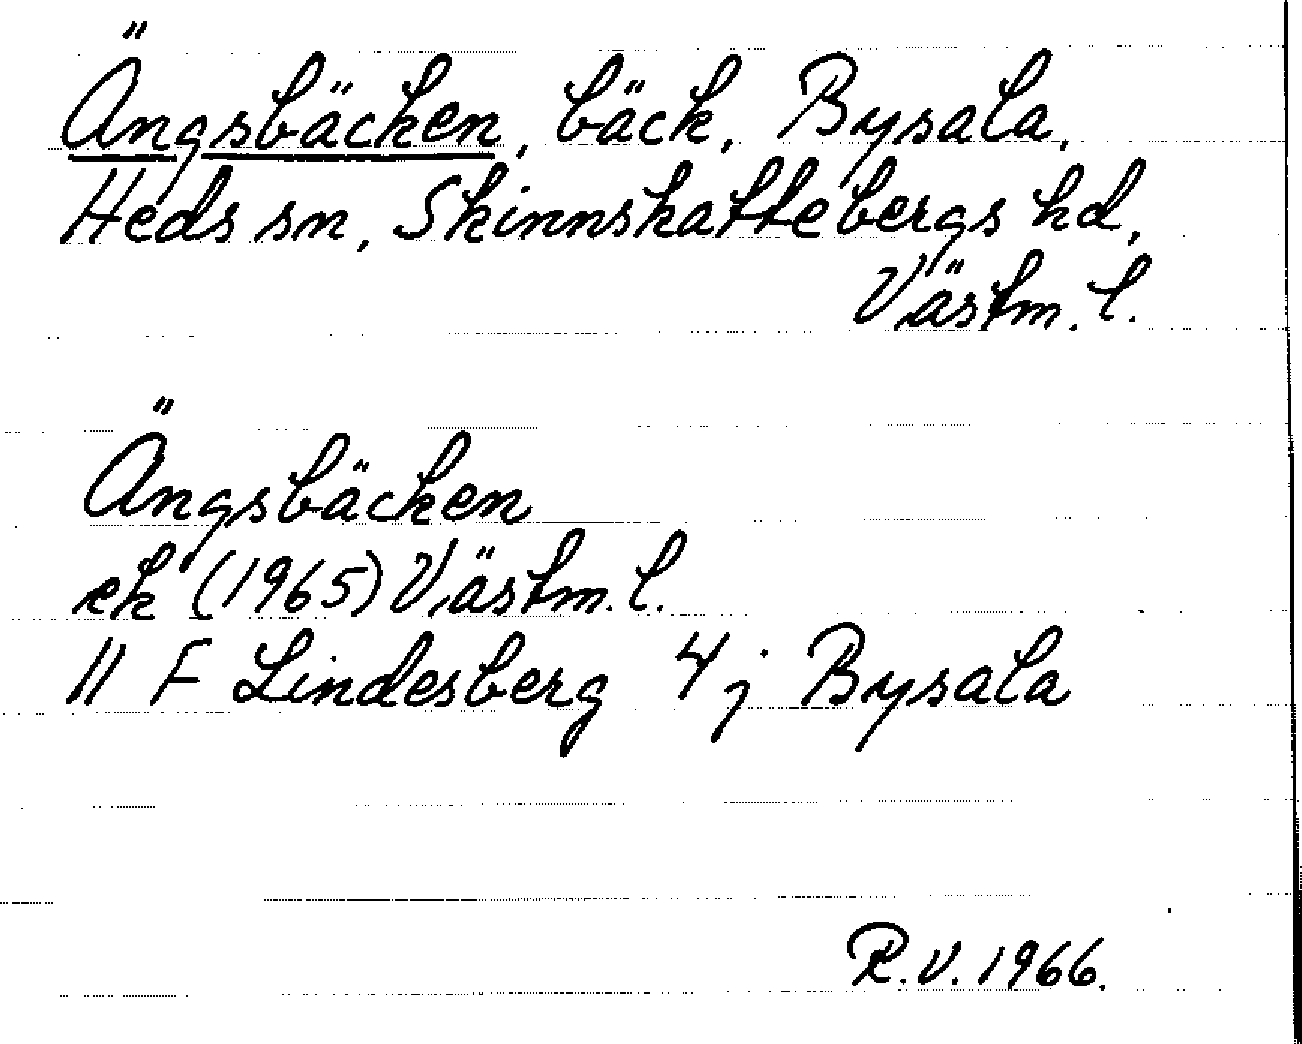 Ängsbäcken, bäck, Bysala,
Heds sn, Skinnskattebergs hd,
Västm. l.
Ängsbäcken
ek (1965) Västm. l.
11 F Lindesberg 4 j Bysala
R.V. 1966.